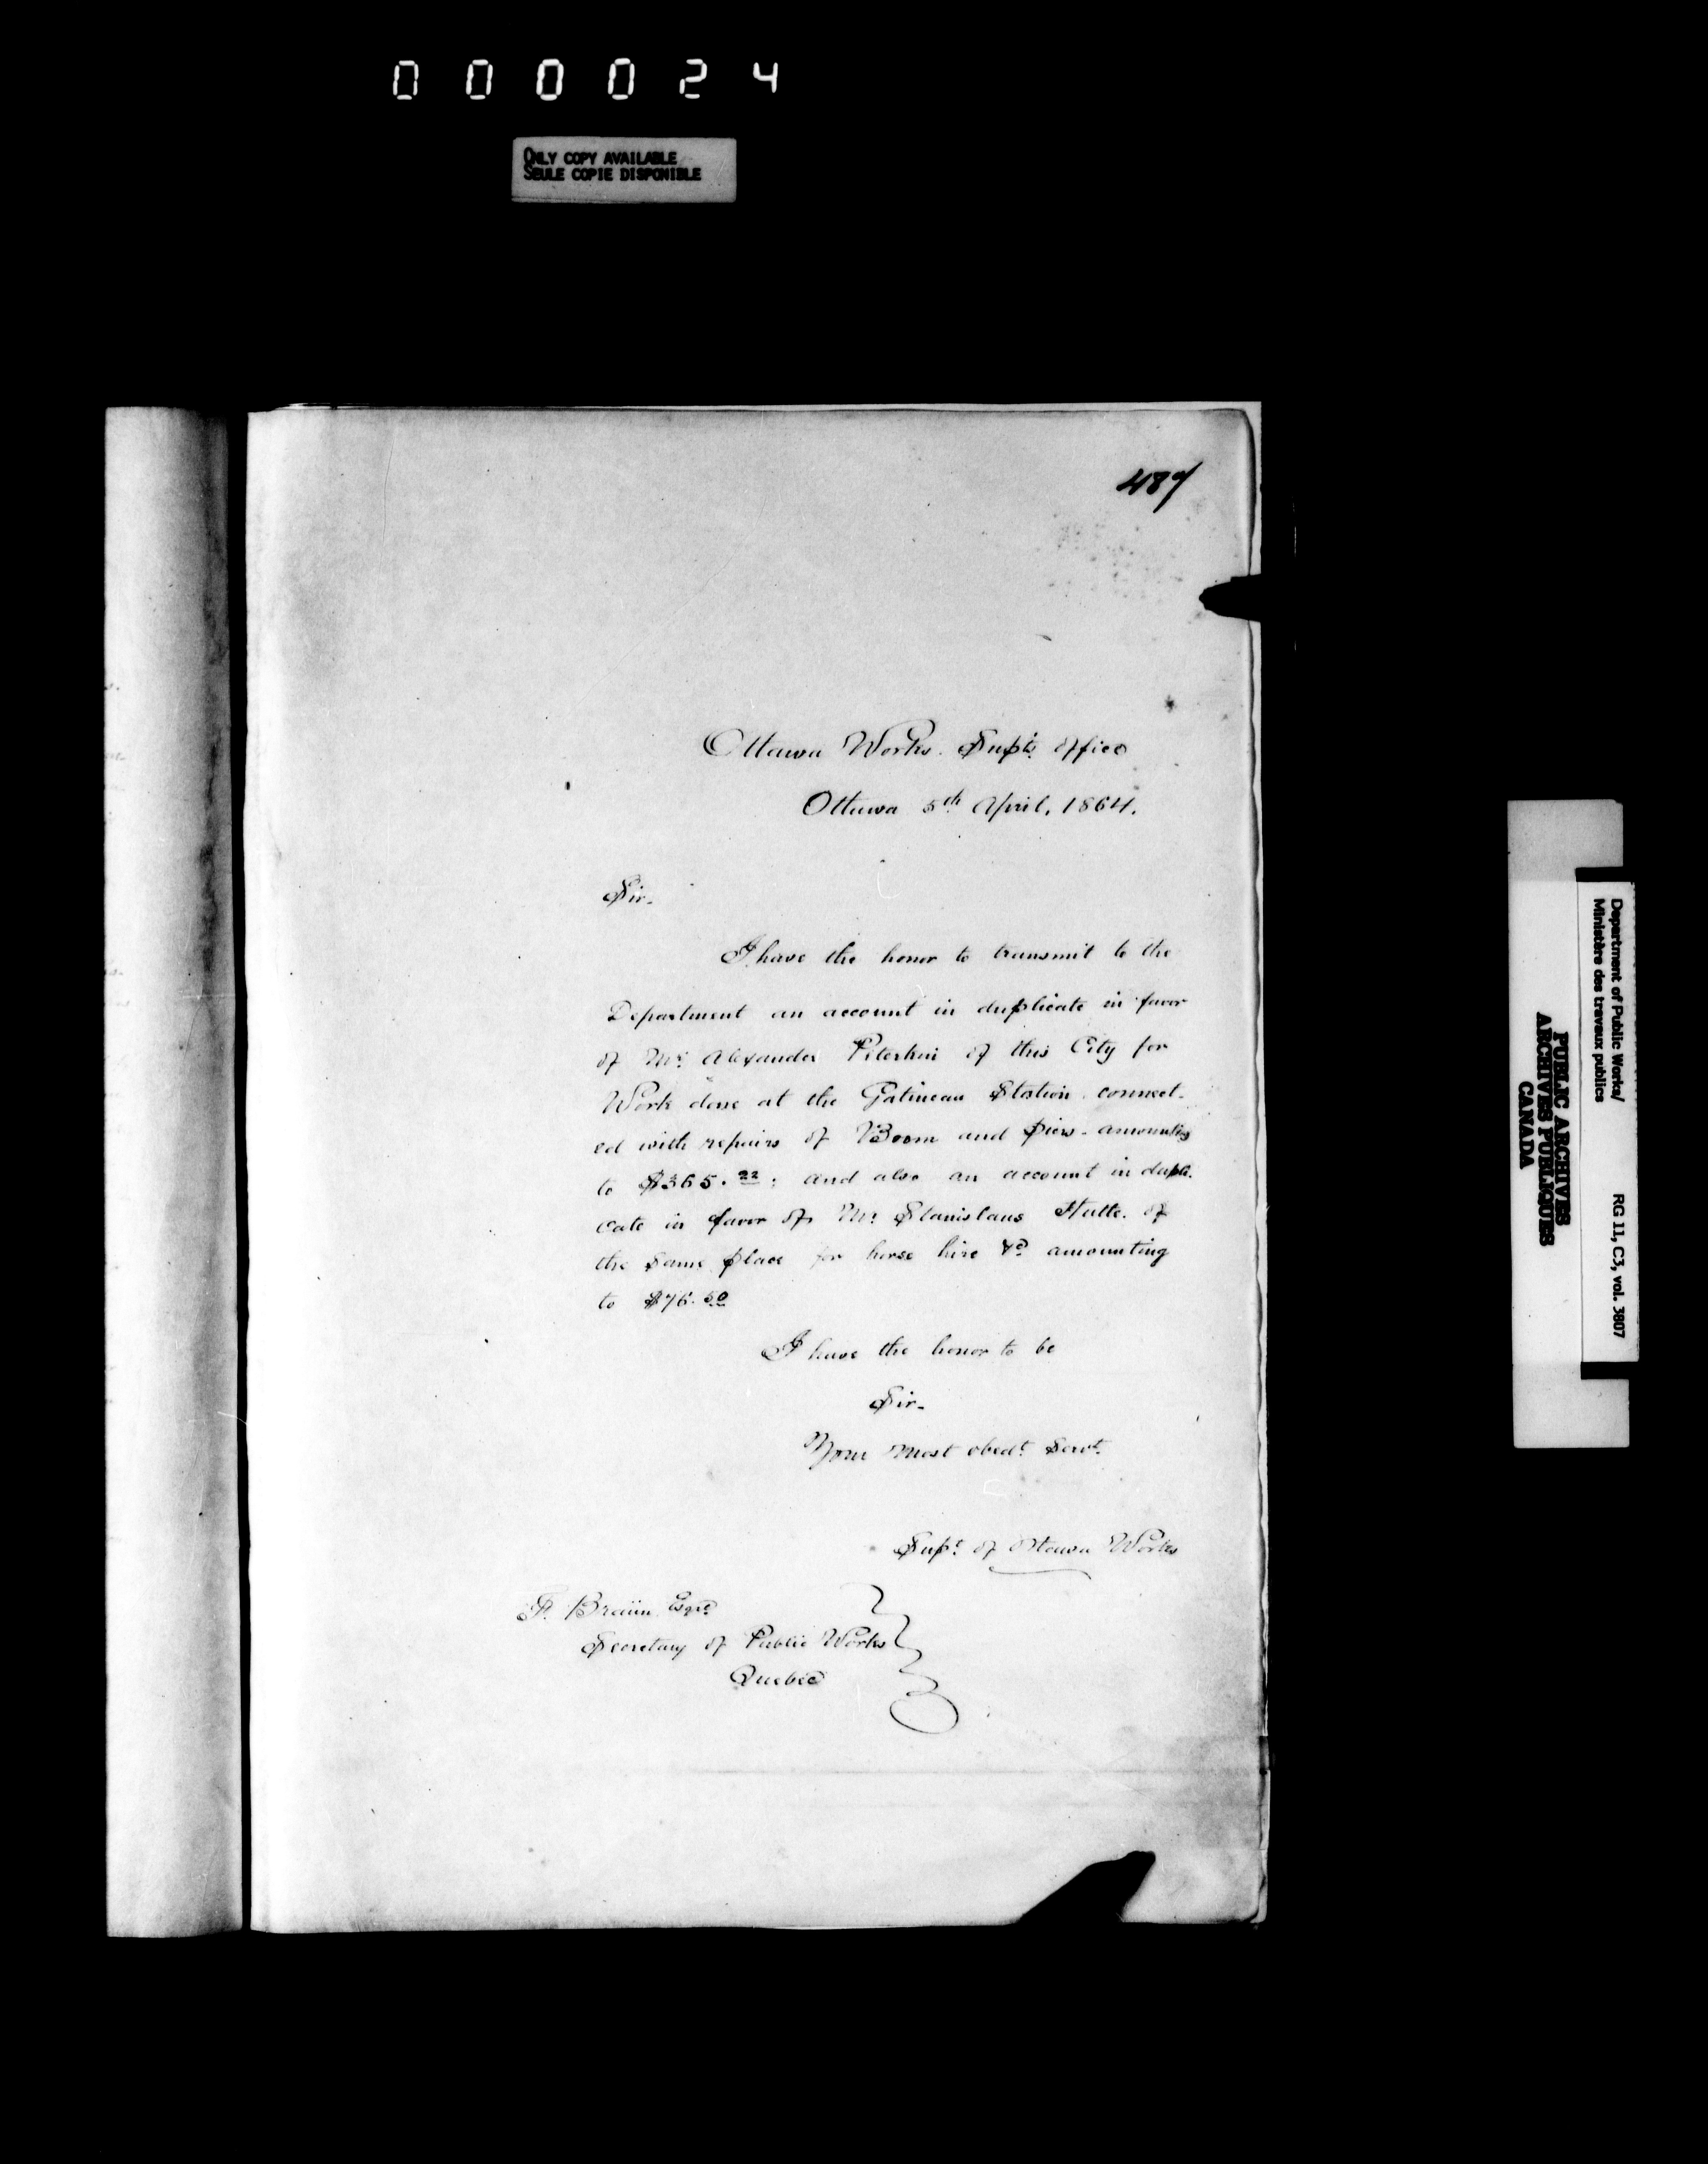 000024
ONLY COPY AVAILABLE
SEULE COPIE DISPONIBLE
487
Ottawa Works. Supt's. Office
Ottawa 5th April, 1864.
Sir.
I have the honor to transmit to the
Department an account in duplicate in favor
of Mr. Alexander Peterkin of this City for
Work done at the Gatineau Station. connect-
ed with repairs of Boom and piers. amounting
to $365.22; and also an account in dupli-
cate in favor of Mr. Stanislaus of
the same place for horse hire &c. amounting
to $76.50
I have the honor to be
Sir.
Your most obedt. Servt.
Supt. of Ottawa Works
F. Braün Esqre.
Secretary of Public Works
Quebec
Department of Public Works/
Ministère des travaux publics
RG 11, C3, vol. 3807
PUBLIC ARCHIVES
ARCHIVES PUBLIQUES
CANADA